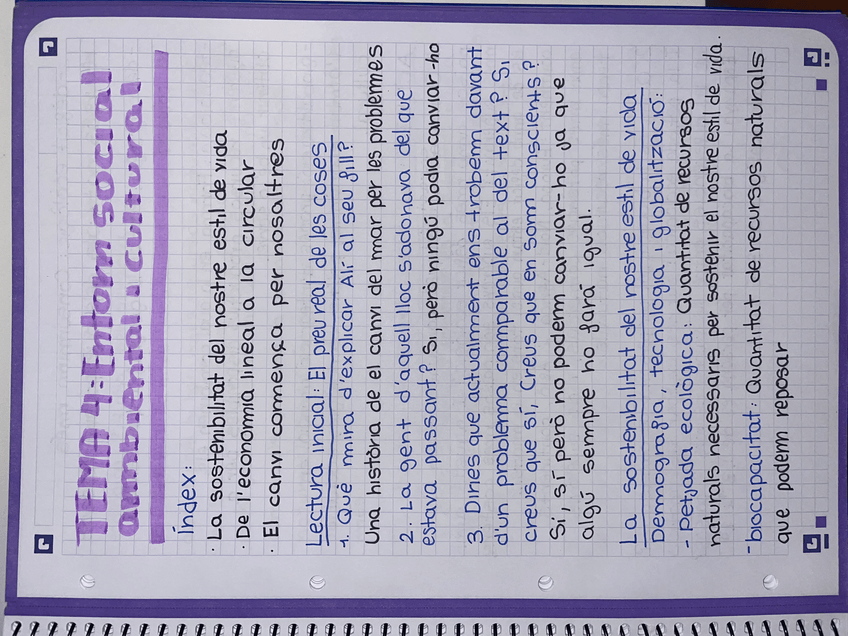 TEMA 4: Entorn social
ambiental i cultural
Índex:
· La sostenibilitat del nostre estil de vida
· De l'economia lineal a la circular
· El canvi comença per nosaltres
Lectura inicial: El preu real de les coses
1. Què mira d'explicar Alí al seu fill?
Una història de el canvi del mar per les problemes
2. La gent d'aquell lloc s'adonava del que
estava passant? Si, però ningú podia canviar-ho
3. Dines que actualment ens trobem davant
d'un problema comparable al del text? Si
creus que sí, Creus que en som conscients?
Sí, sí però no podem canviar-ho ja que
algú sempre ho farà igual.
La sostenibilitat del nostre estil de vida
Demografia, tecnologia i globalització:
- Petjada ecològica: Quantitat de recursos
naturals necessaris per sostenir el nostre estil de vida.
- biocapacitat: Quantitat de recursos naturals
que podem reposar